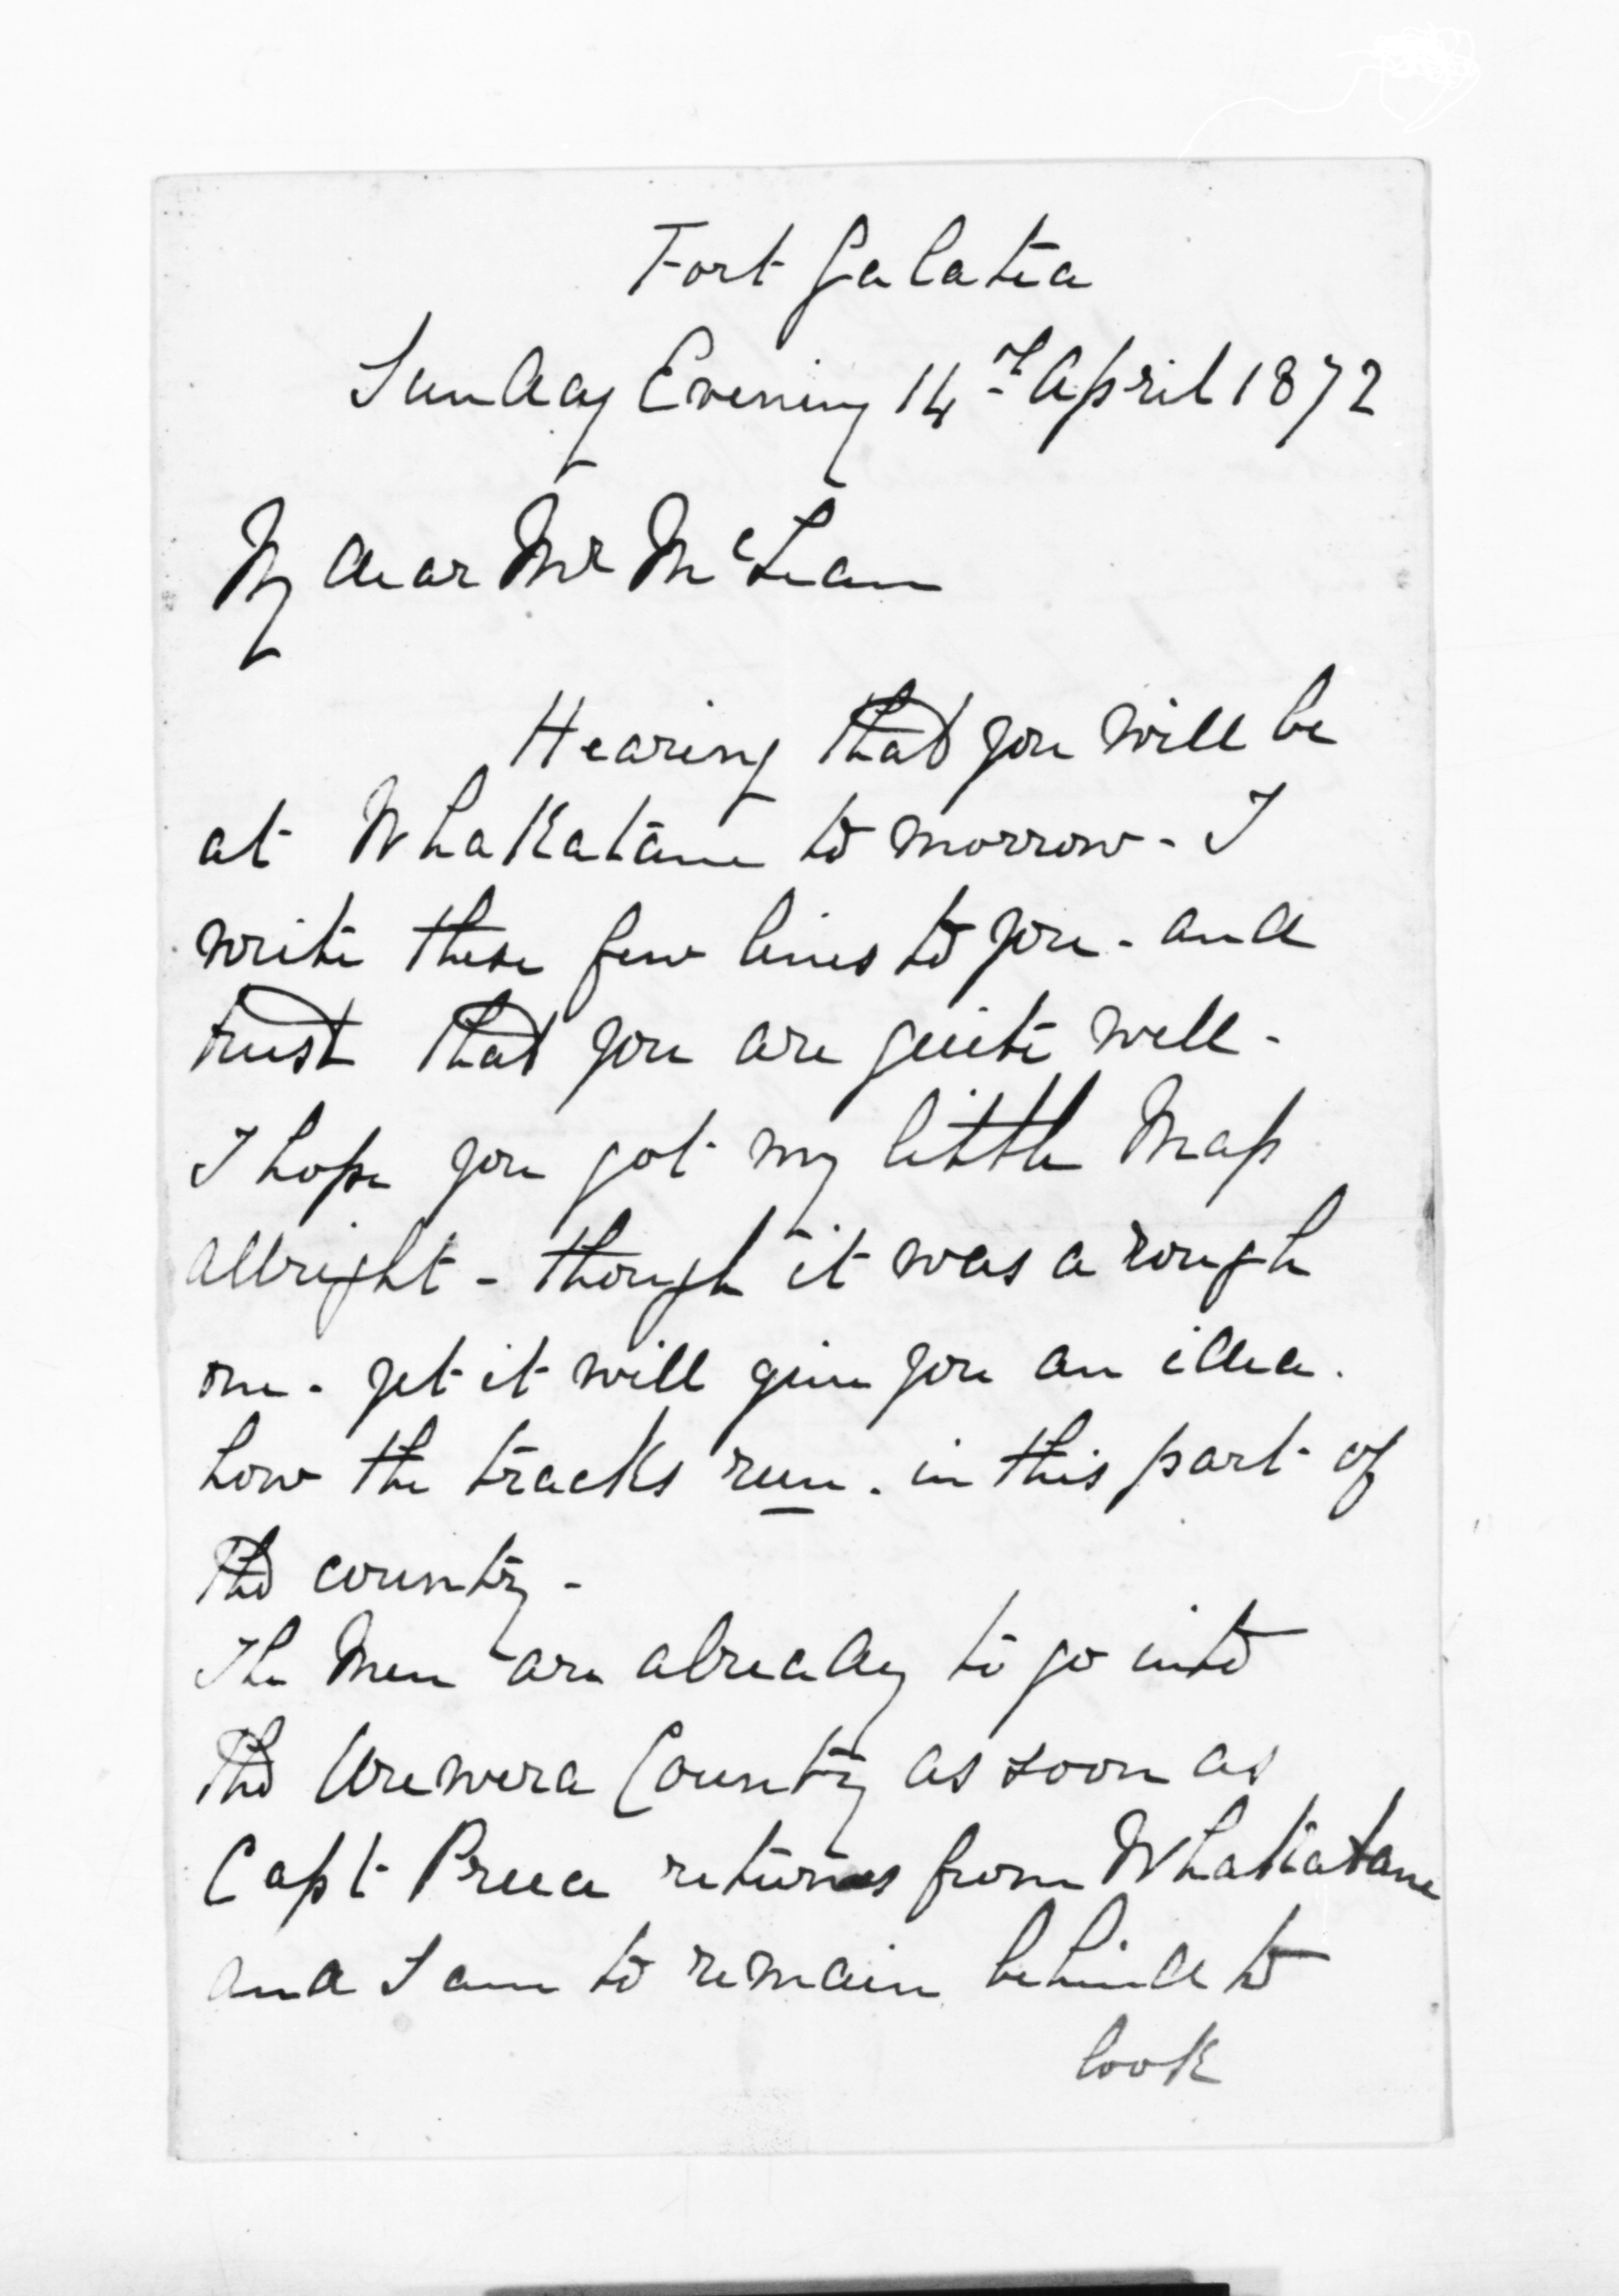 Fort Galatea
Sunday Evening 14th April 1872
My dear Mr McLean
Hearing that you will be
at Whakatane to morrow - I
write these few lines to you - and
trust that you are quite well -
I hope you got my little Map
allright - though it was a rough
one - yet it will give you an idea.
how the tracks run. in this part of
the country -
The Men are already to go into
the Urewera Country as soon as
Capt Preece returns from Whakatane
and I am to remain behind to
look